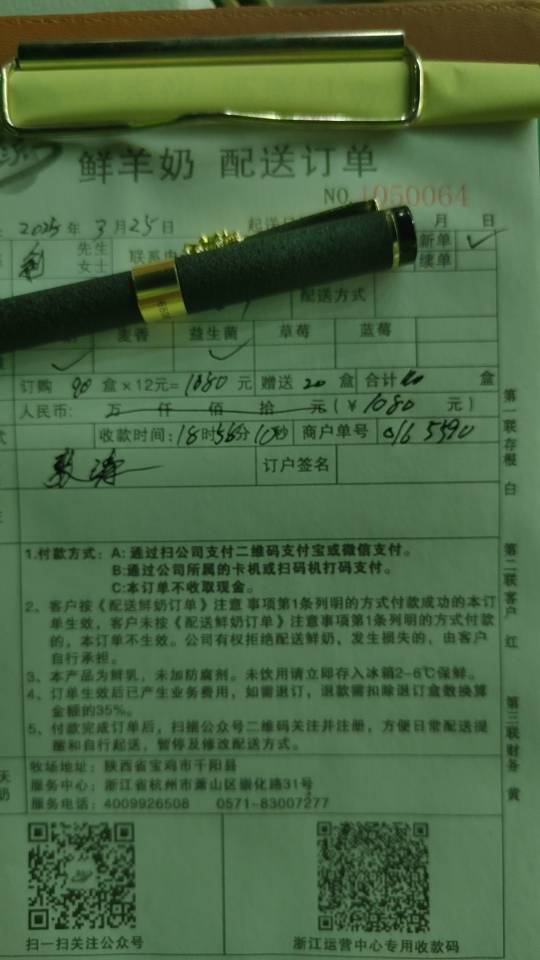 鲜羊奶 配送订单
NO.1050064
2025年3月25日 月 日
先生 新单 ✓
女士 续单
配送方式
麦香 益生菌 草莓 蓝莓
订购 90 盒×12元=1080元 赠送 20 盒 合计 盒
人民币: 万 仟 佰 拾 元(¥1080 元)
收款时间: 18时56分10秒 商户单号 016 5590
订户签名
1.付款方式: A:通过扫公司支付二维码支付宝或微信支付。
B:通过公司所属的卡机或扫码机打码支付。
C:本订单不收取现金。
2、客户按《配送鲜奶订单》注意事项第1条列明的方式付款成功的本订
单生效,客户未按《配送鲜奶订单》注意事项第1条列明的方式付款
的,本订单不生效。公司有权拒绝配送鲜奶、发生损失的,由客户
自行承担。
3、本产品为鲜乳,未加防腐剂。未饮用请立即存入冰箱2-6℃保鲜。
4、订单生效后已产生业务费用,如需退订,退款需扣除退订盒数换算
金额的35%。
5、付款完成订单后,扫描公众号二维码关注并注册,方便日常配送提
醒和自行起送,暂停及修改配送方式。
牧场地址:陕西省宝鸡市千阳县
服务中心:浙江省杭州市萧山区崇化路31号
服务电话:4009926508 0571-83007277
扫一扫关注公众号 浙江运营中心专用收款码
第一联存根 白
第二联客户 红
第三联财务 黄